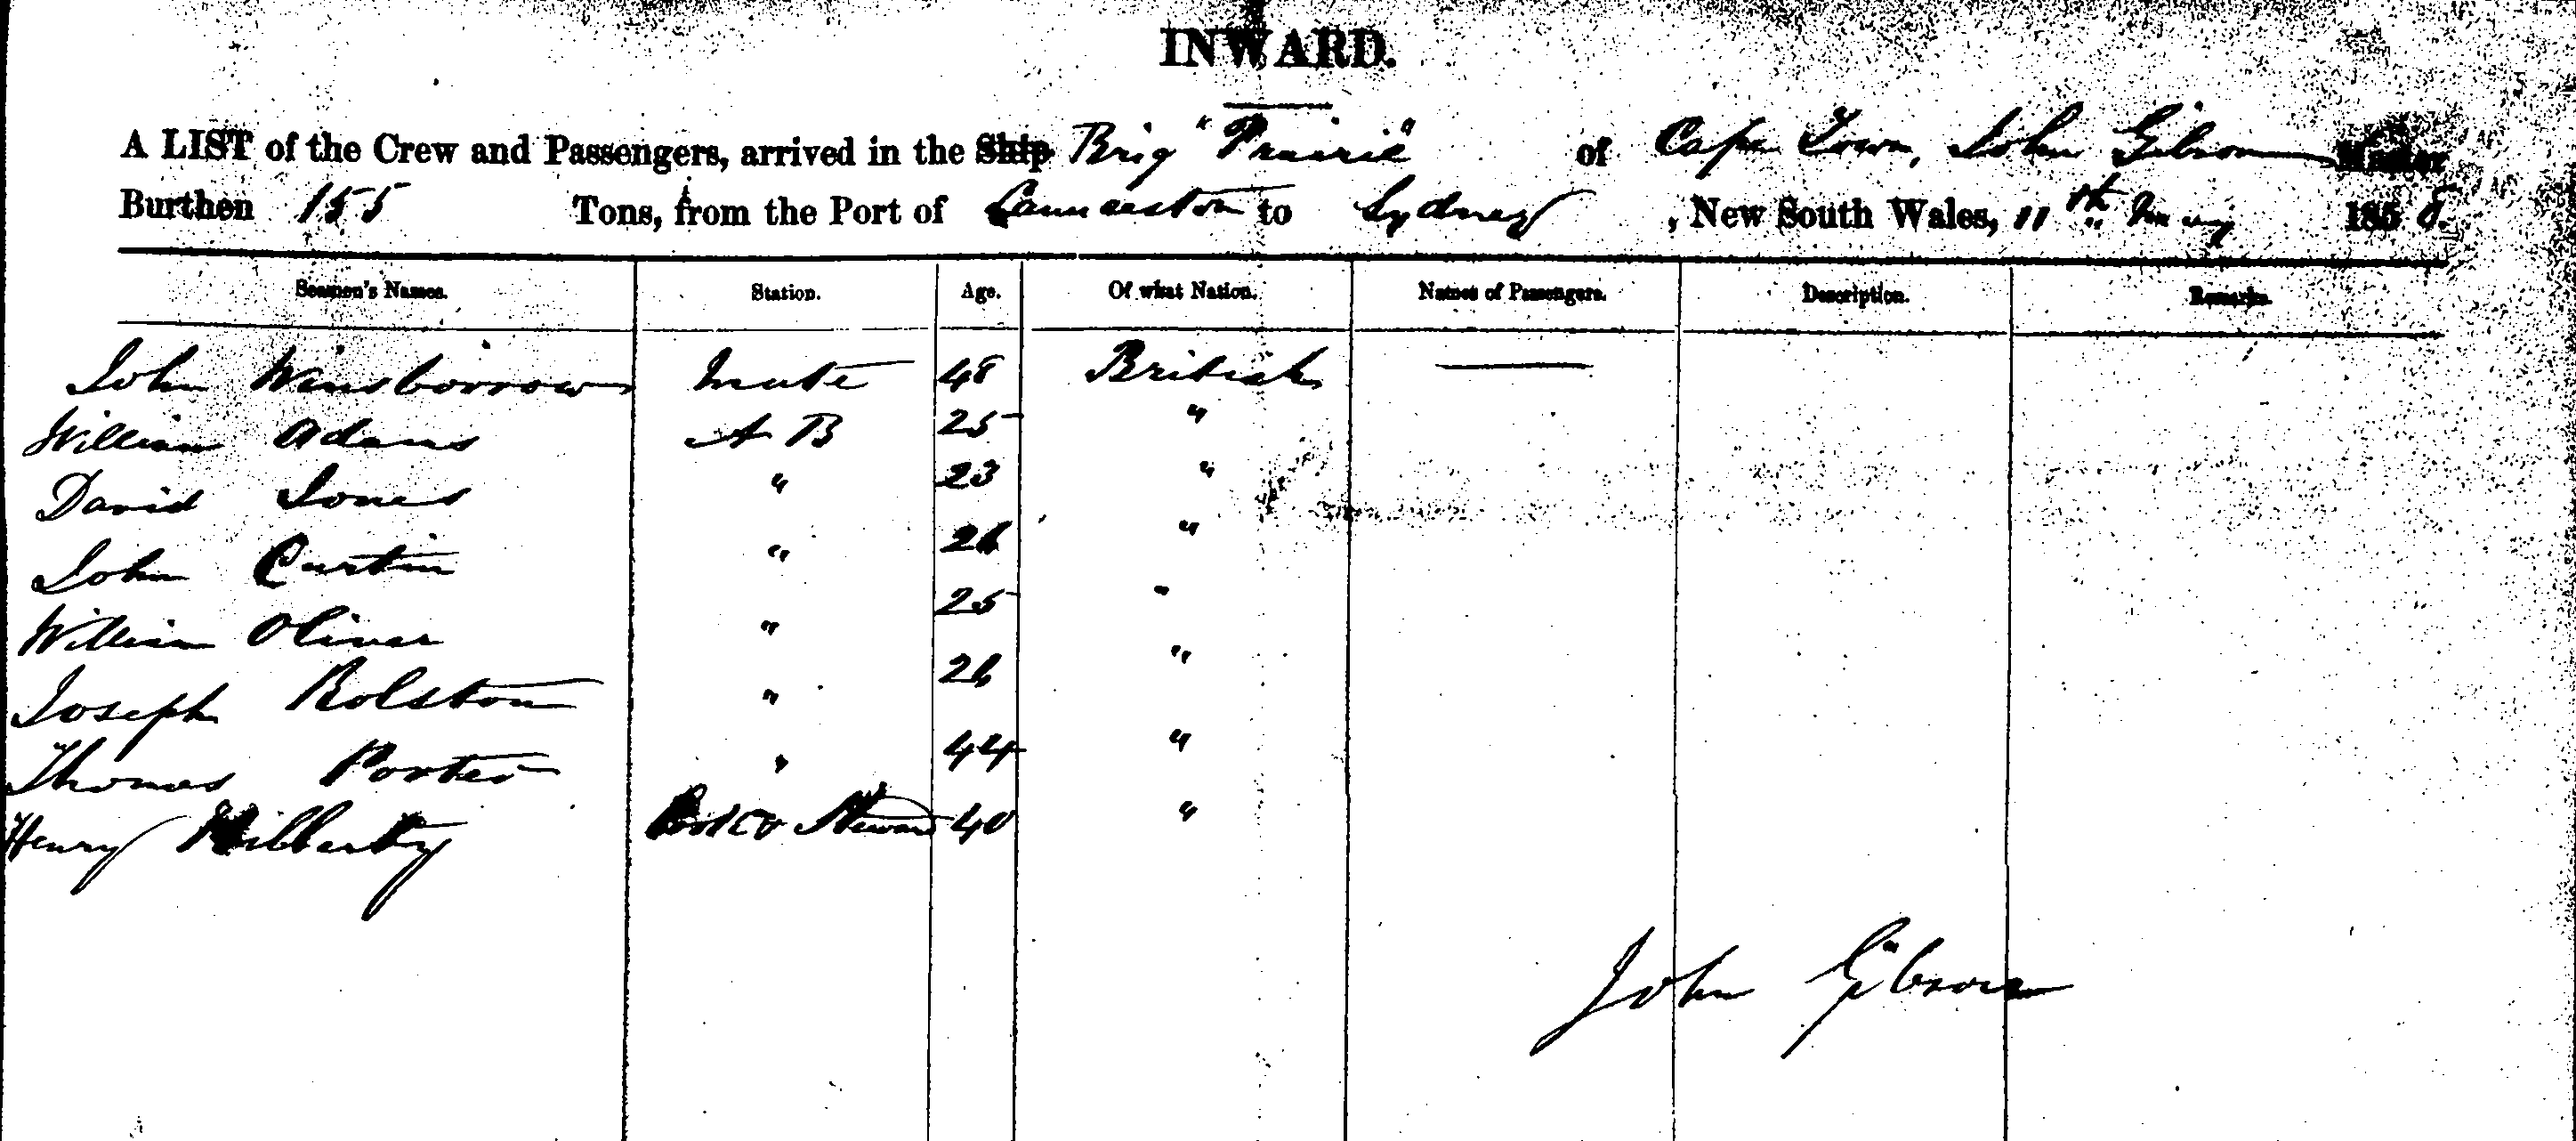 INWARD.
A LIST of the Crew and Passengers, arrived in the Ship Brig "Prairie" of Cape Town, John Gibson Master
Burthen 155 Tons, from the Port of Launceston to Sydney, New South Wales, 11th May 1858.
Seamen's Names. Station. Age. Of what Nation. Names of Passengers. Description. Remarks.
John Winsborrow Mate 48 British —
William Adams A B 25 "
David Jones " 23 "
John Curtin " 26 "
William Oliver " 25 "
Joseph Rolston " 26 "
Thomas Porter " 44 "
Henry Cook & Steward 40 "
John Gibson